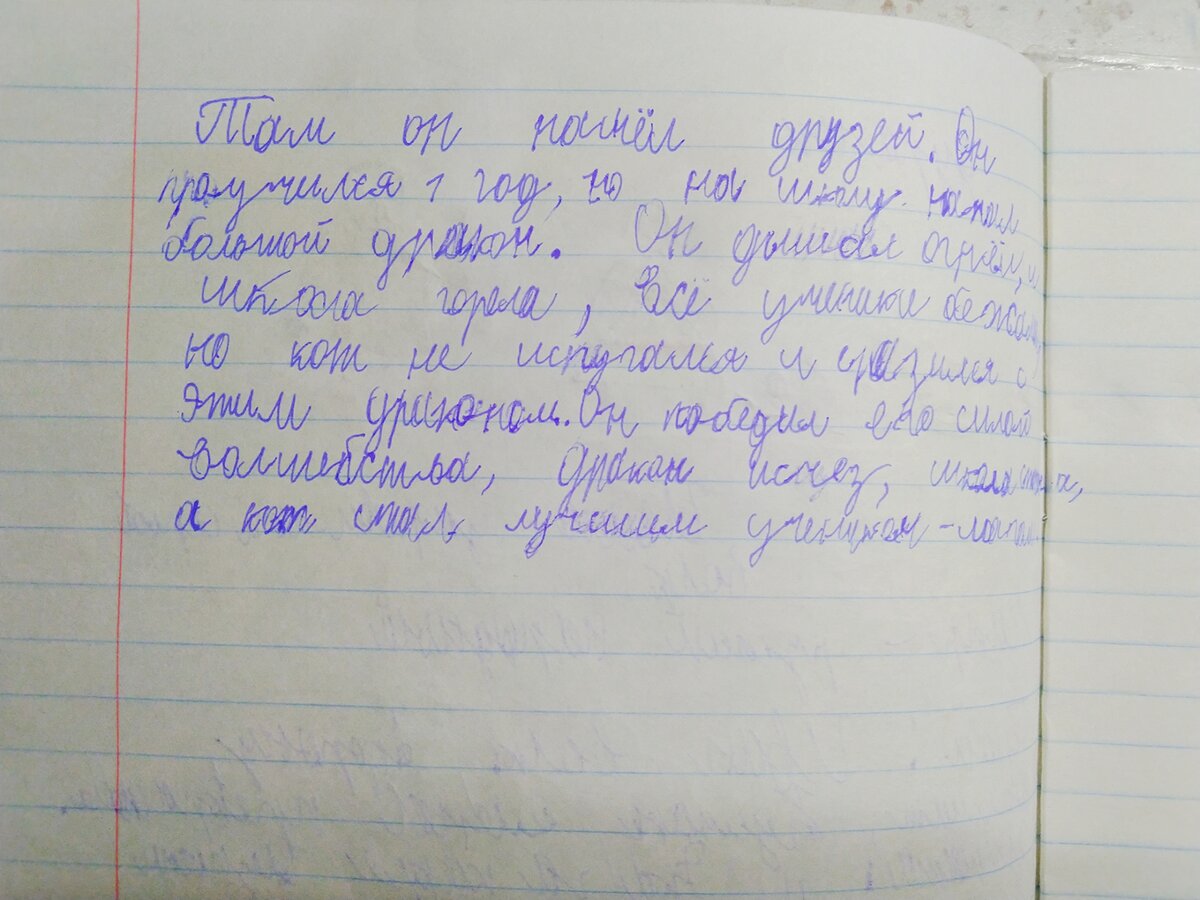 Там он нашёл друзей. Он
проучился 1 год, но на школу напал
большой дракон. Он дышал огнём, и
школа горела, всё ученики бежали,
но кот не испугался и сразился с
этим драконом. Он победил его силой
волшебства, дракон исчез, школа
а кот стал лучшим учеником -